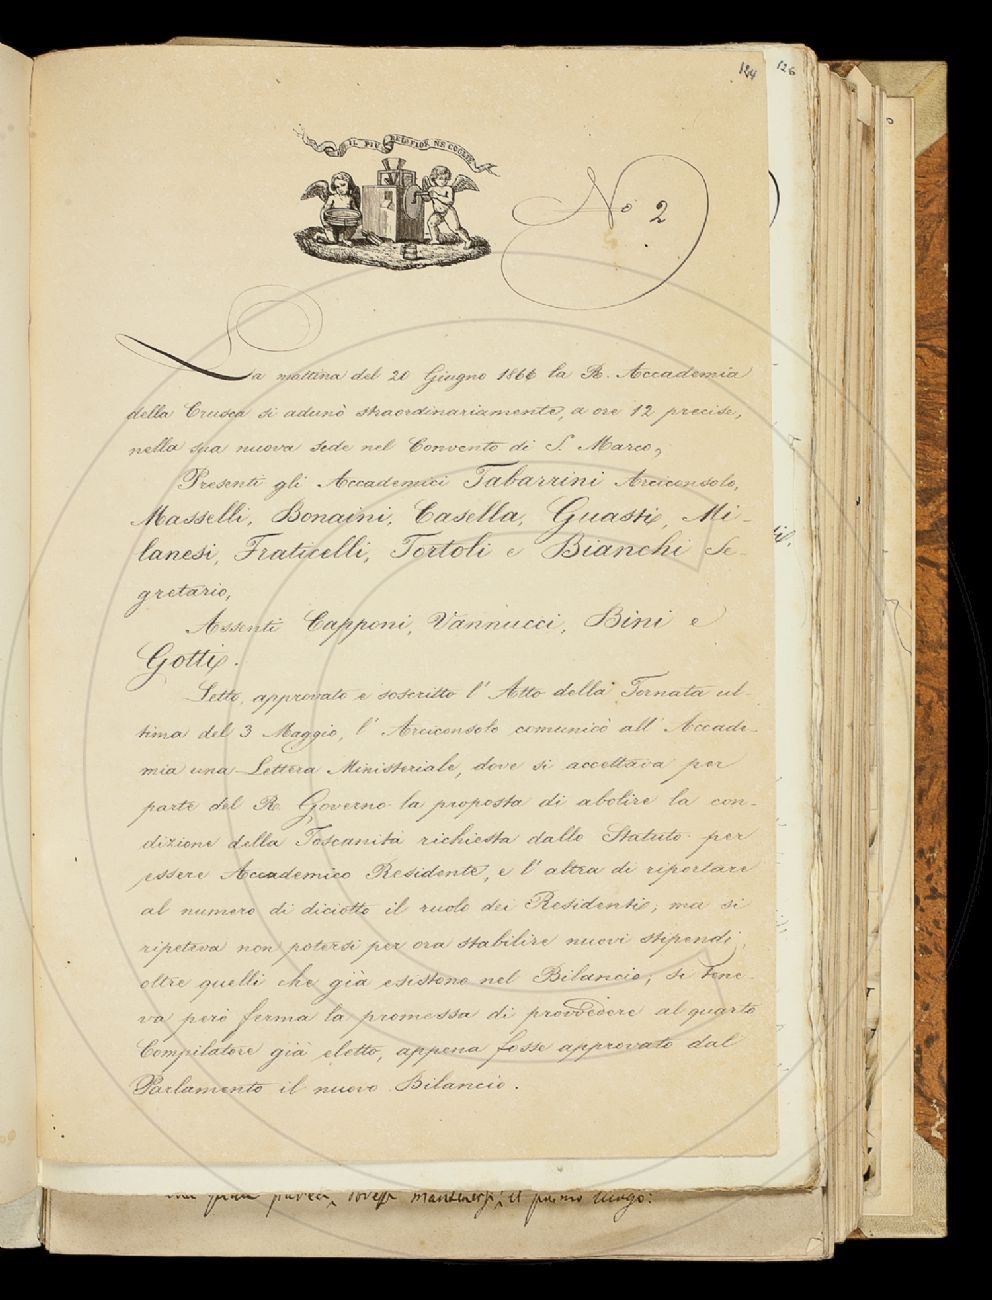 124
126
IL PIÙ BEL FIOR NE COGLIE
No 2
La mattina del 20 Giugno 1866 la R. Accademia
della Crusca si adunò straordinariamente, a ore 12 precise,
nella sua nuova sede nel Convento di S. Marco,
Presenti gli Accademici Tabarrini Arciconsolo,
Masselli, Bonaini, Casella, Guasti, Mi-
lanesi, Fraticelli, Tortoli e Bianchi Se-
gretario,
Assenti Capponi, Vannucci, Bini e
Gotti.
Letto, approvato e soscritto l' Atto della Tornata ul-
tima del 3 Maggio, l' Arciconsolo comunicò all' Accade-
mia una Lettera Ministeriale, dove si accettava per
parte del R. Governo la proposta di abolire la con-
dizione della Toscanità richiesta dallo Statuto per
essere Accademico Residente, e l' altra di riportare
al numero di diciotto il ruolo dei Residenti; ma si
ripeteva non potersi per ora stabilire nuovi stipendi,
oltre quelli che già esistono nel Bilancio; si tene-
va però ferma la promessa di provvedere al quarto
Compilatore già eletto, appena fosse approvato dal
Parlamento il nuovo Bilancio.
il primo luogo: